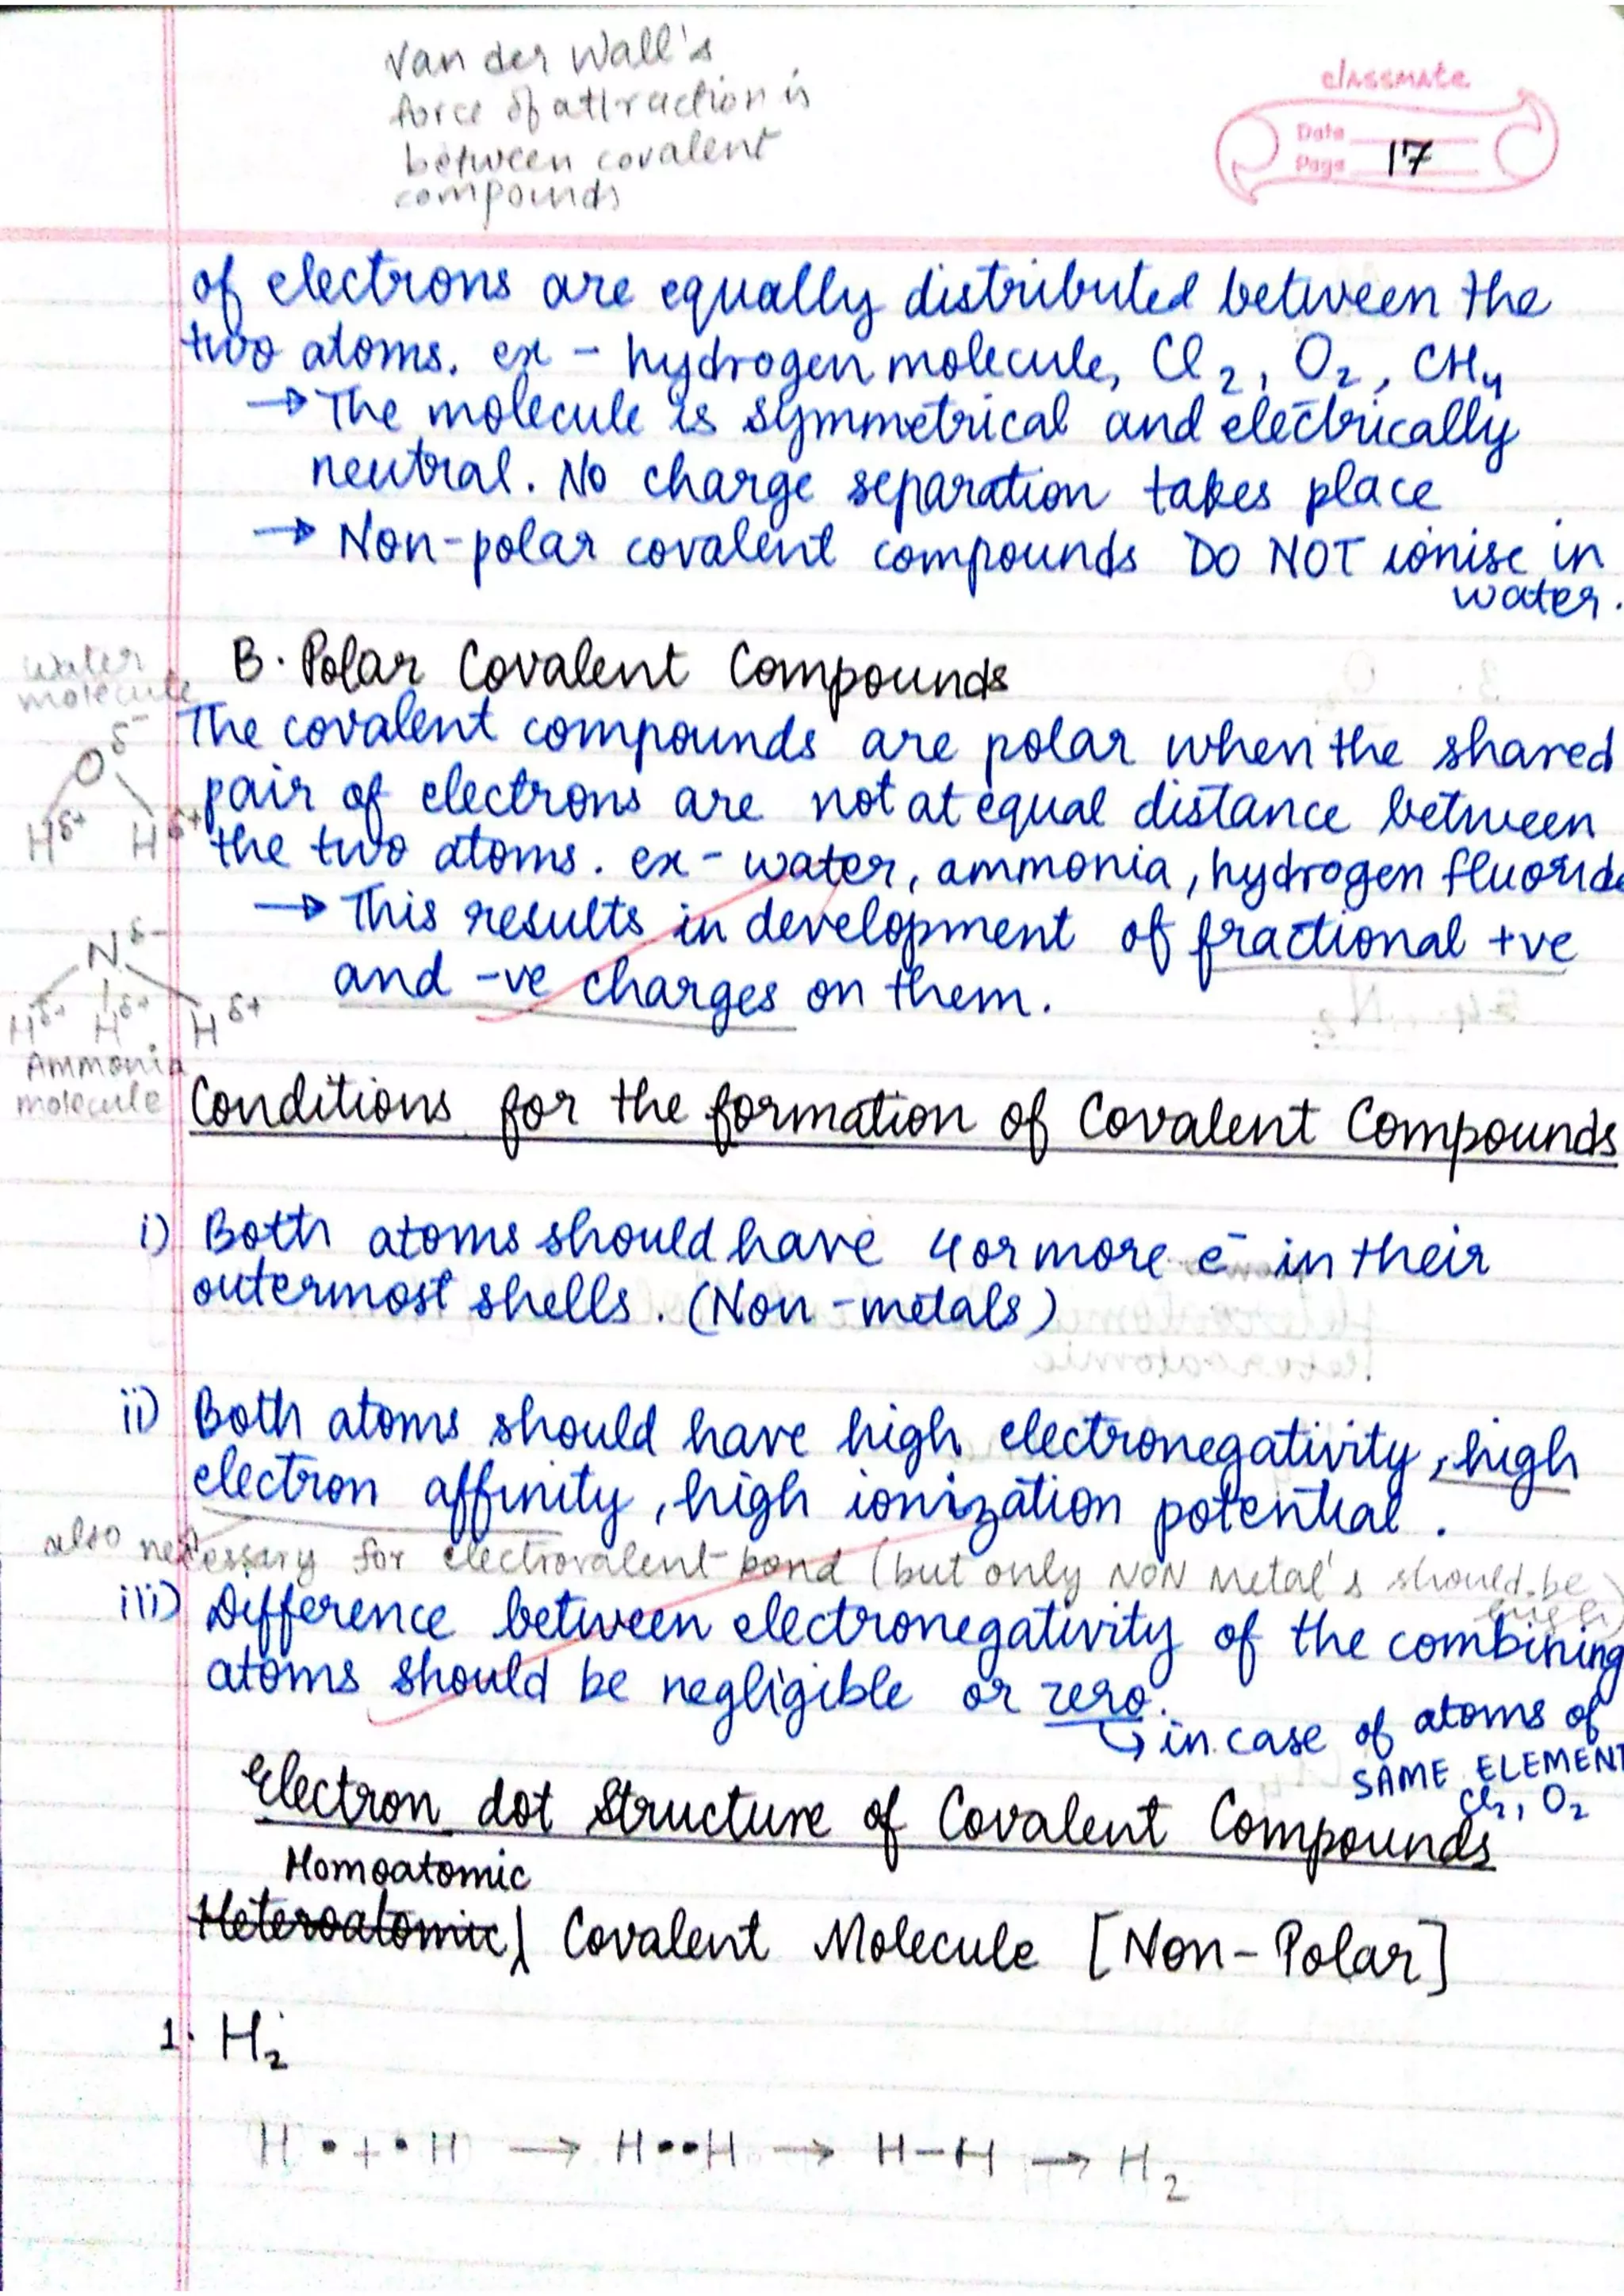 Van der Wall's
force of attraction is
between covalent
compounds
classmate
Date
Page 17
of electrons are equally distributed between the
two atoms. ex - hydrogen molecule, Cl₂, O₂, CH₄
→ The molecule is symmetrical and electrically
neutral. No charge separation takes place
→ Non-polar covalent compounds DO NOT ionise in
water.
B. Polar Covalent Compounds
The covalent compounds are polar when the shared
pair of electrons are not at equal distance between
the two atoms. ex - water, ammonia, hydrogen fluoride
→ This results in development of fractional +ve
and -ve charges on them.
Water
molecule
O δ-
H δ+ H δ+
N δ-
H δ+ H δ+ H δ+
Ammonia
molecule
Conditions for the formation of Covalent Compounds
i) Both atoms should have 4 or more e⁻ in their
outermost shells. (Non-metals)
ii) Both atoms should have high electronegativity, high
electron affinity, high ionization potential.
also necessary for electrovalent bond (but only NON Metal's should be
iii) Difference between electronegativity of the combining
atoms should be negligible or zero.
↳ in case of atoms of
SAME ELEMENT
Cl₂, O₂
Electron dot Structure of Covalent Compounds
Homoatomic
Heteroatomic Covalent Molecule [Non-Polar]
1. H₂
H • + • H → H••H → H-H → H₂